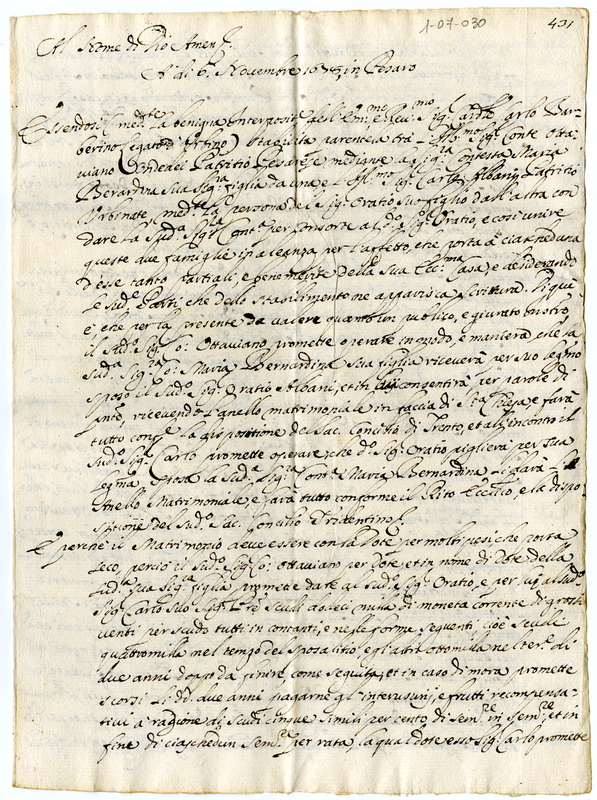 1-07-030
431
Al Nome di Dio Amen
A' di 6 Novembre in Pesaro
Essendosi med.te la benigna Interposit.e dell' Em.mo e Rev.mo Sig. Card.le Carlo Bar-
berino Legato d' Urbino stabilita parentela trà l' Ill.mo Sig. Conte Otta-
viano Patritio Pesarese mediante la Sig.ra Contessa Maria
Berardina sua Sig.ra figlia da una e l' Ill.mo Sig. Carlo Albani Patritio
Urbinate med.te la persona del Sig. Oratio suo figlio dall' altra con
dare la Sud.a Sig.ra Cont.a per consorte al d.o Sig. Oratio, e così unire
queste due famiglie in aleanza per l'affetto, che porta à ciascheduna
d'esse tanto partiali, e benemerite della Sua Ecc.ma Casa, e desiderando
le sud.e Parti che dello Stabilimento ne apparisca scrittura. Di quì
è che per la presente da valere quanto un publico, e giurato Instro.
il sud.o Sig. Co: Ottaviano promette operare in modo, e maniera che la
sud.a Sig.ra Co: Maria Bernardina sua figlia riceverà per suo legmo
sposo il sud.o Sig. Oratio Albani, et in consentirà per parole di
pnte, ricevendo l'anello matrimoniale in faccia di S.ta Chiesa, e farà
tutto conf.e la dispositione del Sac. Concilio di Trento, et all' incontro il
Sud.o Sig. Carlo promette operare, che d.o Sig. Oratio piglierà per sua
legma sposa la Sud.a Sig.ra Cont.a Maria Bernardina li darà l'
Anello Matrimoniale, e farà tutto conforme il Rito Eccl.co, e la dispo-
sitione del Sud.o Sac. Concilio Tridentino
E perche il Matrimonio deve essere con la Dote per molti pesi che porta
seco, perciò il sud.o Sig. Co: Ottaviano per Dote et in nome di Dote della
sud.a sua Sig.ra figlia promette dare al Sud.o Sig. Oratio, e per lui al sud.o
Sig. Carlo suo Sig. P.re scudi dodeci mila di moneta corrente di grossi
venti per scudo tutti in contanti, e nelle forme seguenti cioè scudi
quattromilla nel tempo del sposalitio e gl' altri ottomilla nel ter.e di
due anni doppo da finire come seguita, et in caso di mora promette
scorsi li dd. due anni pagarne gl' interusurij, e frutti recompensa-
tivi à ragione di scudi cinque simili per cento di Sem.re in Sem.re, et in
fine di ciaschedun Sem.re per rata, la qual dote esso Sig. Carlo promette